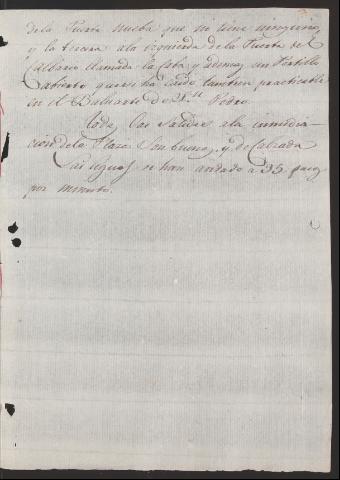 de la Puerta nueba que no tiene ninguno,
y la tercera ala izquierda dela Puerta del
Calbario llamada la Caba y ademas un Portillo
Cabierto que se ha caido tambien practicable
en el Baluarte de Sn. Pedro.
Todas las Salidas ala inmedia-
cion dela Plaza son buenas, y de Calzada
Las leguas se han andado a 95 pasos
por minuto.